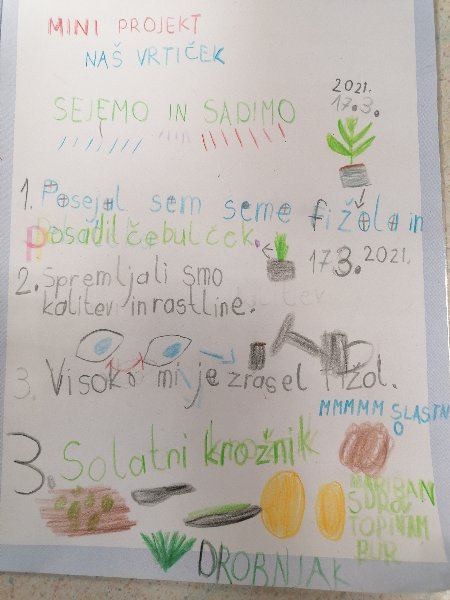 MINI PROJEKT
NAŠ VRTIČEK
2021.
17.3.
SEJEMO IN SADIMO
1. Posejal sem seme fižola in
posadil čebulček.
17.3.2021.
2. Spremljali smo
kalitev in rastline.
3. Visoko mi je zrasel fižol.
MMMMM SLASTNO
3. Solatni krožnik
NARIBAN
SUROV
TOPINAM
BUR
DROBNJAK